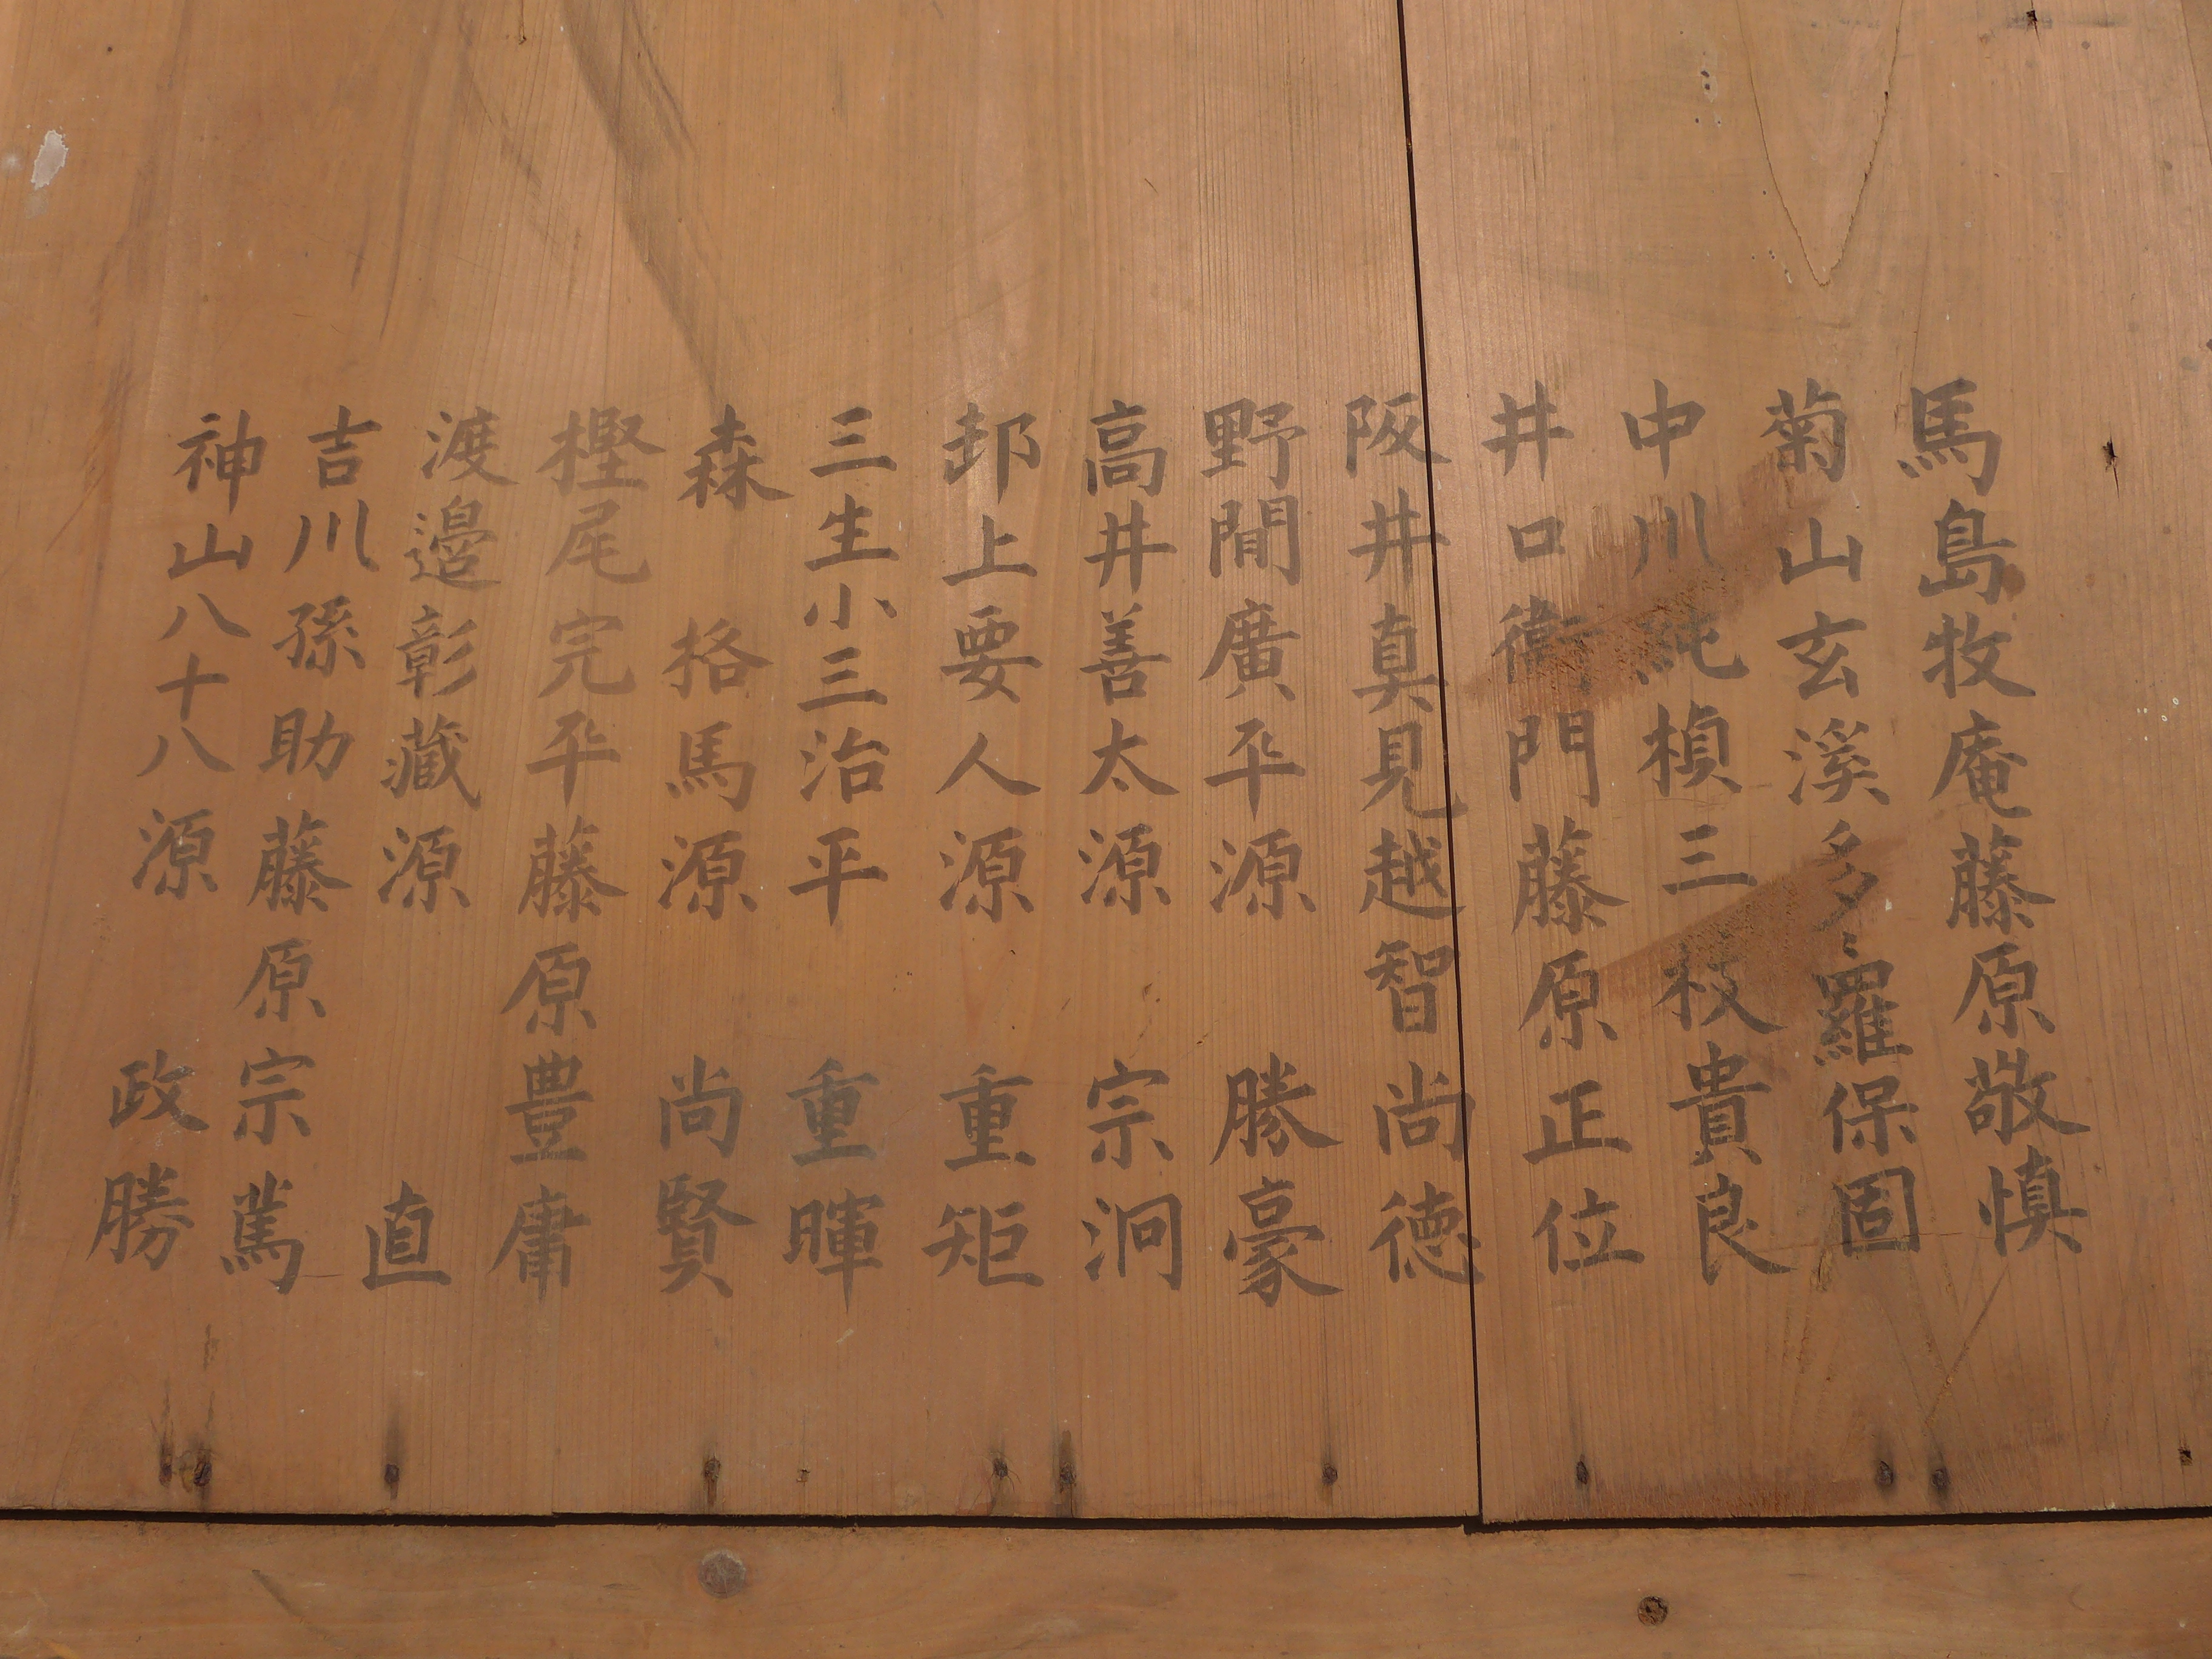 馬島牧庵藤原敬慎
菊山玄溪多々羅保固
中川純槙三枝貴良
井口衛門藤原正位
阪井真見越智尚徳
野間廣平源勝豪
高井善太源宗泂
邨上要人源重矩
三生小三治平重暉
森格馬源尚賢
樫尾完平藤原豊庸
渡邉彰藏源直
吉川孫助藤原宗篤
神山八十八源政勝